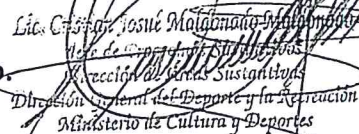 Lic. Cristian Josué Maldonado Maldonado
Jefe de Sustantivos
Dirección de Áreas Sustantivas
Dirección General del Deporte y la Recreación
Ministerio de Cultura y Deportes